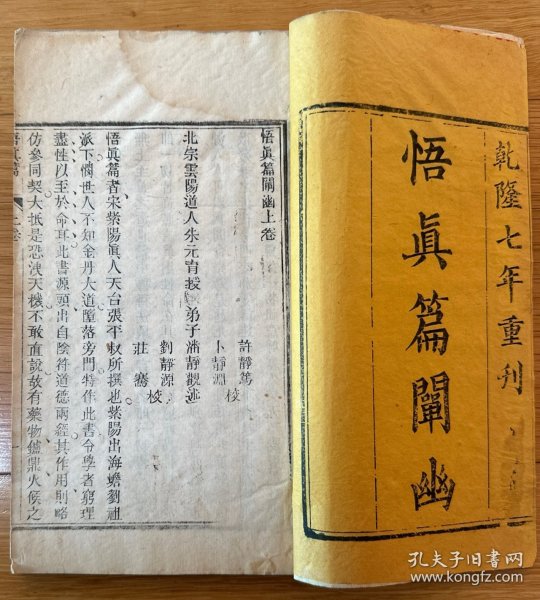 乾隆七年重刊
悟眞篇闡幽
悟眞篇闡幽上卷
許靜篤
卜靜淵 校
北宗雲陽道人朱元育授 弟子潘靜觀述
劉靜源
莊騫 校
悟眞篇者宋紫陽眞人天台張平叔所撰也紫陽出海蟾劉祖
派下憫世人不知金丹大道墮落旁門特作此書令學者窮理
盡性以至於命耳此書源頭出自陰符道德兩經其作用則略
仿參同契大抵是恐洩天機不敢直說故有藥物鑪鼎火候之
悟眞篇 上卷
孔夫子旧书网
www.kongfz.com